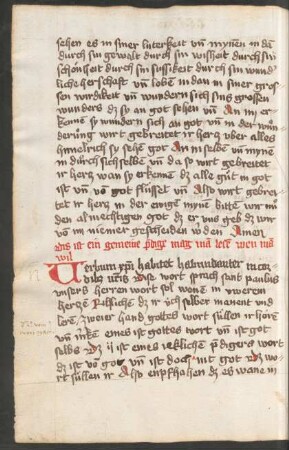 sehen es in siner luterkeit vn̄ mynen in da
durch sin gewalt durch sin wisheit durch sin
schonheit durch sin sussikeit durch sin wund
liche herschaft vn̄ loben in dan in siner gros
sen wirdikeit vn̄ wundern sich sins grossen
wunders dz so an got sehen vn̄ An im er
kenne sy wundern sich an got vn̄ in der wun
derung wirt gebreitet ir herz vber alles
himelrich sy sehe got An im selbe vn̄ myne
in durch sich selbe vn̄ da so wirt gebreitet
ir herz wan sy erkenne dz alle gut in got
ist vn̄ vo got flusset vn̄ Also wirt gebrei
tet ir herz in der mynne bitte wir nu
den almechtigen got dz er vns geb dz wir
vo im niemer gescheiden werden Amen
dis ist ein gemeine bdige mag ma lese wen ma
wil
Verbum xpi habitet habundanter in cor
dibz vris Dise wort sprich sant paulus
vnsers herren wort sol wonen in vweren
herze
lere zweier hand gottes wort sullen ir hore
vn̄ eines ist gottes wort vn̄ ist got
selbs dz ist eines ieklichen pdigers wort
dz ist vo got vn̄ ist doch nit got dz wo
rt sullen ir Also enpfhahen dz es wane in